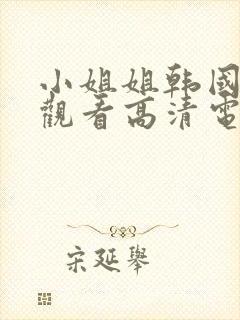 小姐姐韩國
觀看高清電
宋延舉